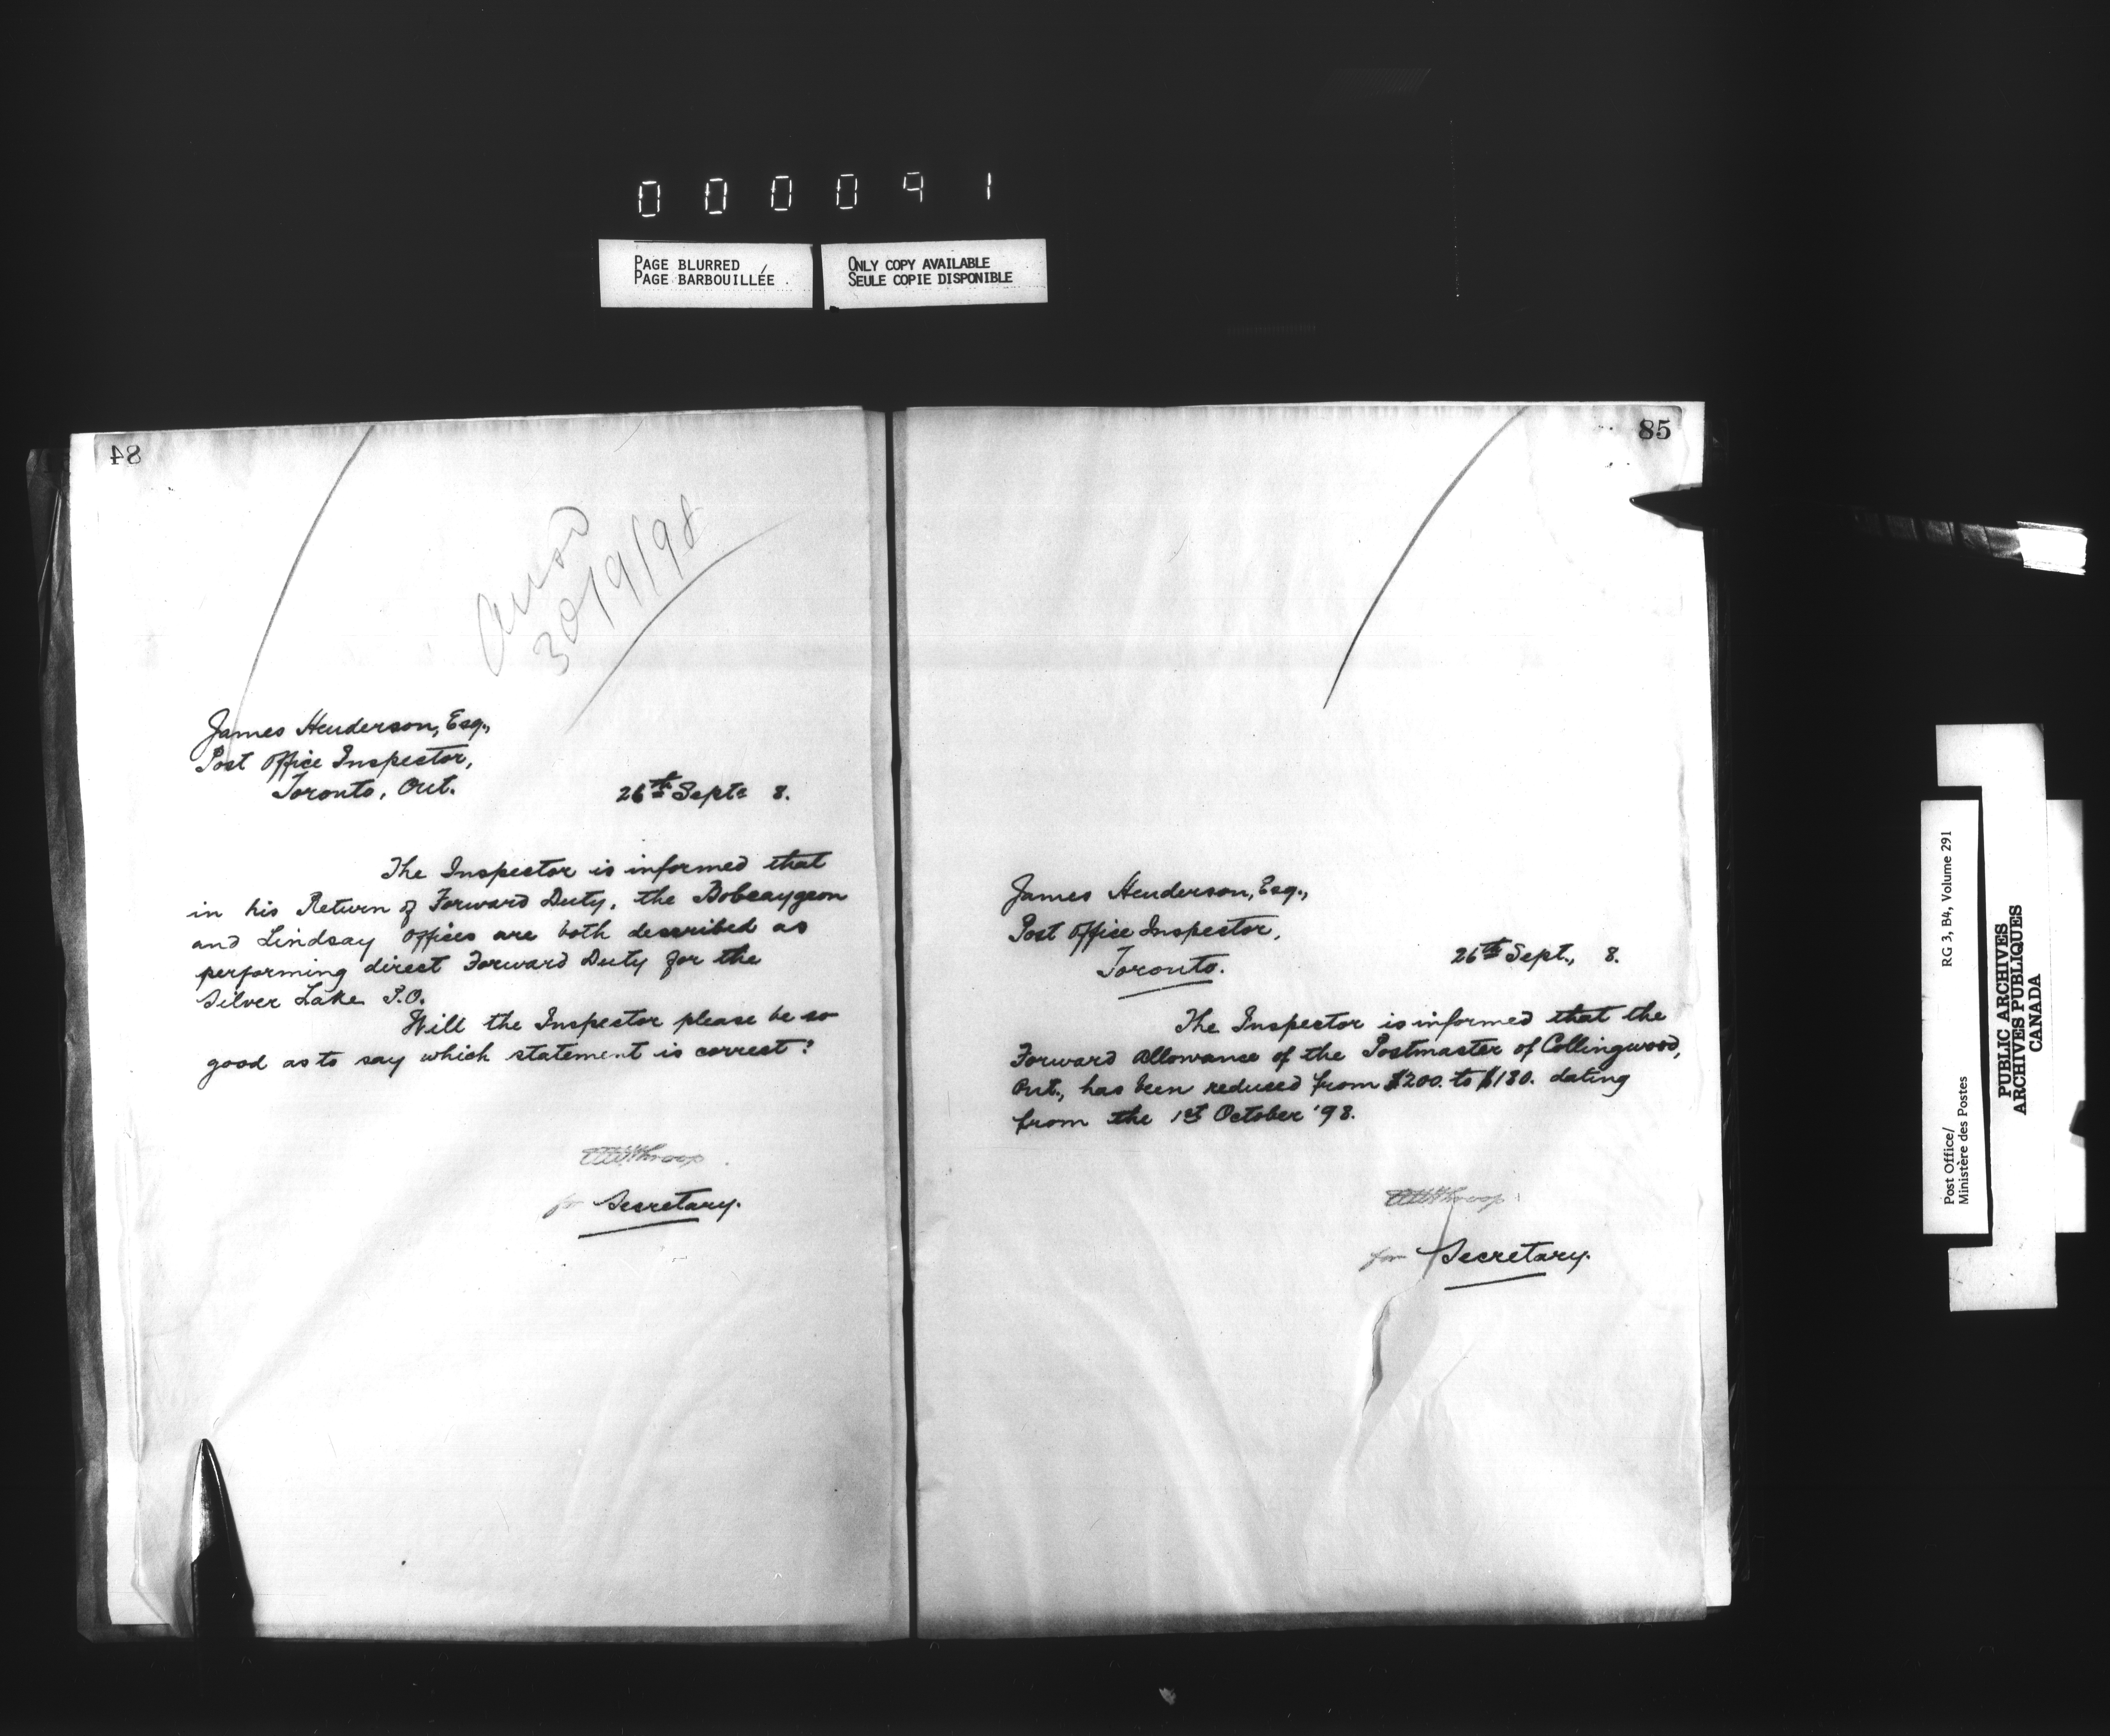 000091
PAGE BLURRED
PAGE BARBOUILLÉE
ONLY COPY AVAILABLE
SEULE COPIE DISPONIBLE
84
30/9/98
James Henderson, Esq.,
Post Office Inspector,
Toronto, Ont.
26th Sept. 8.
The Inspector is informed that
in his Return of Forward Duty, the Bobcaygeon
and Lindsay Offices are both described as
performing direct Forward Duty for the
Silver Lake P.O.
Will the Inspector please be so
good as to say which statement is correct?
for Secretary.
85
James Henderson, Esq.,
Post Office Inspector,
Toronto.
26th Sept., 8.
The Inspector is informed that the
Forward Allowance of the Postmaster of Collingwood,
Ont., has been reduced from $200. to $180. dating
from the 1st October '98.
for Secretary.
Post Office/
Ministère des Postes
RG 3, B4, Volume 291
PUBLIC ARCHIVES
ARCHIVES PUBLIQUES
CANADA